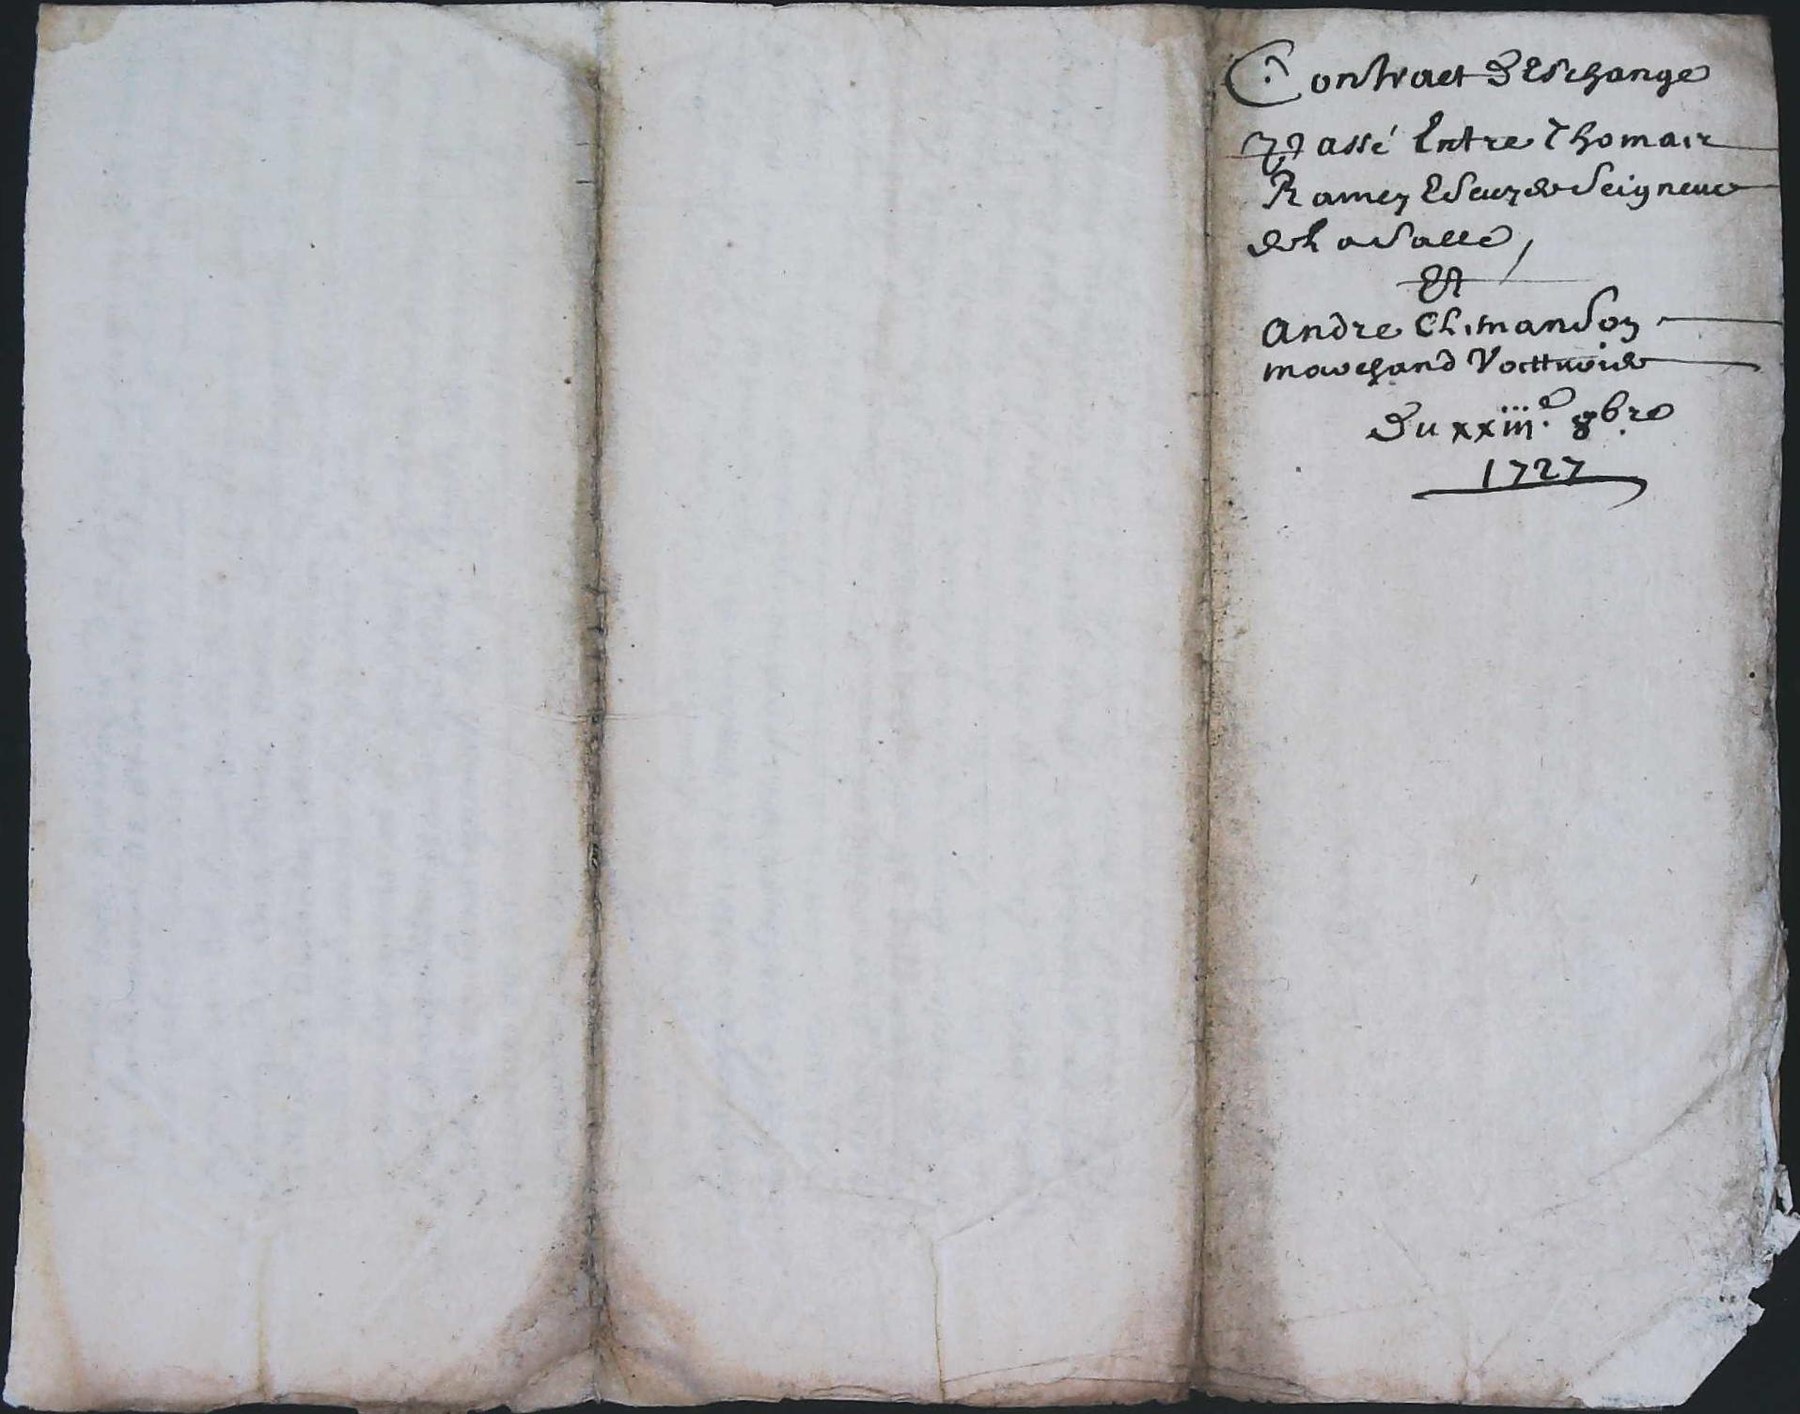 Contract d'Eschange
Passé Entre Thomas
Ramey Escuyer Seigneur
de La Salle,
Et
andre Chimandon
marchand Voitturier
Du xxiii.e 8b.re
1727